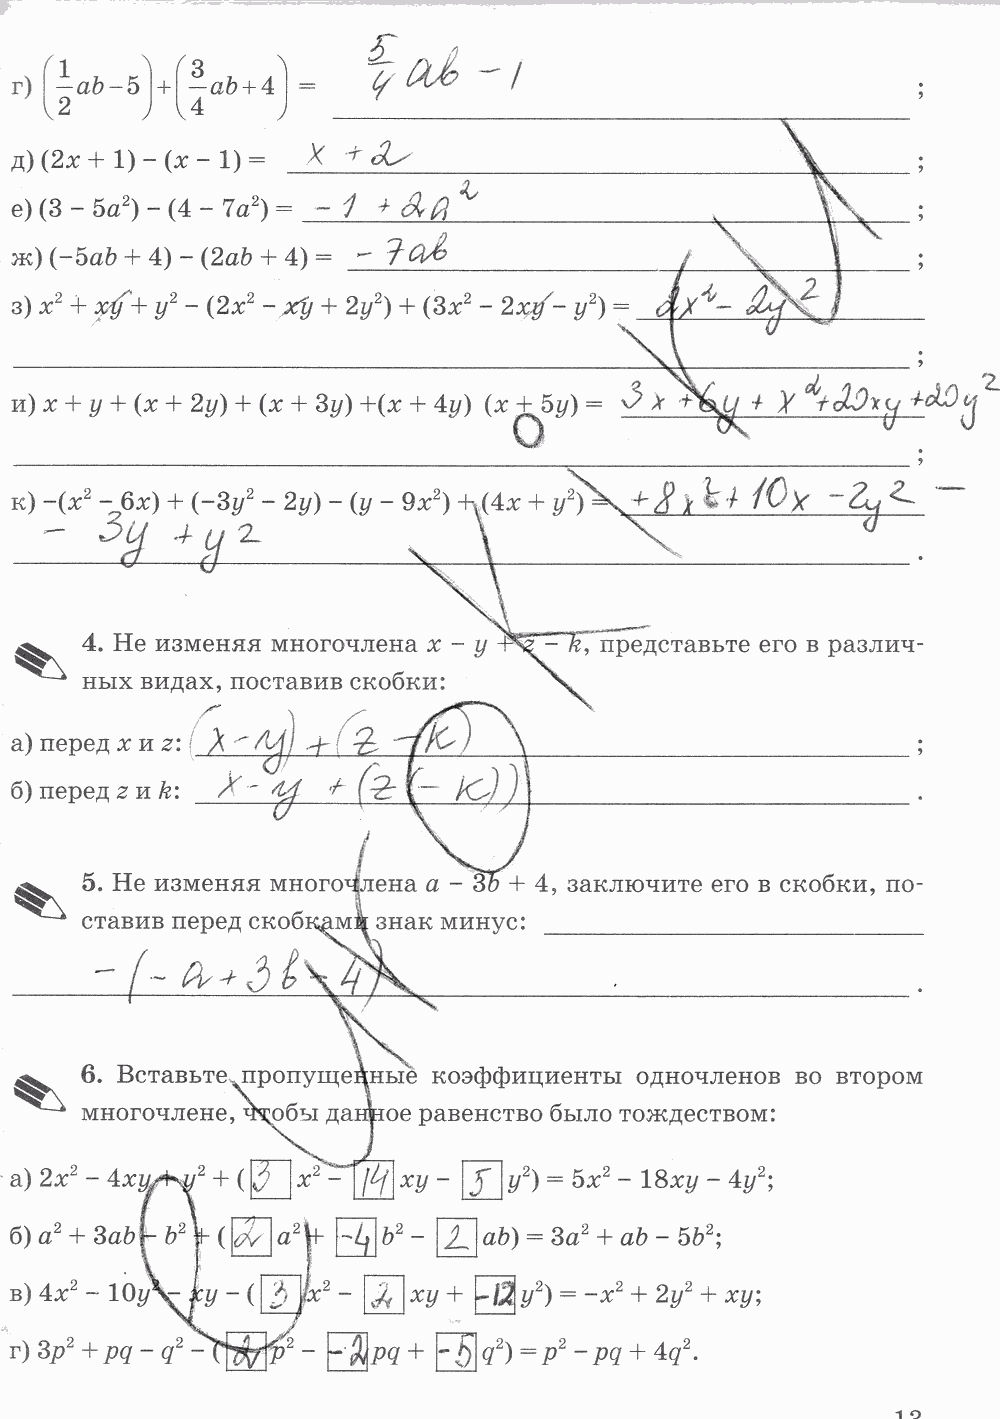 г) (1/2 ab − 5) + (3/4 ab + 4) = 5/4 ab − 1 ;
д) (2x + 1) − (x − 1) = x + 2 ;
е) (3 − 5a²) − (4 − 7a²) = − 1 + 2a² ;
ж) (−5ab + 4) − (2ab + 4) = − 7ab ;
з) x² + xy + y² − (2x² − xy + 2y²) + (3x² − 2xy − y²) = 2x² − 2y²
;
и) x + y + (x + 2y) + (x + 3y) +(x + 4y) (x + 5y) = 3x + 6y + x² + 20xy + 20y²
;
к) −(x² − 6x) + (−3y² − 2y) − (y − 9x²) + (4x + y²) = + 8x² + 10x − 2y² −
− 3y + y² .
4. Не изменяя многочлена x − y + z − k, представьте его в различ-
ных видах, поставив скобки:
а) перед x и z: (x − y) + (z − k) ;
б) перед z и k: x − y + (z (− k)) .
5. Не изменяя многочлена a − 3b + 4, заключите его в скобки, по-
ставив перед скобками знак минус:
− (− a + 3b − 4) .
6. Вставьте пропущенные коэффициенты одночленов во втором
многочлене, чтобы данное равенство было тождеством:
а) 2x² − 4xy + y² + ( 3 x² − 14 xy − 5 y²) = 5x² − 18xy − 4y²;
б) a² + 3ab − b² + ( 2 a² + −4 b² − 2 ab) = 3a² + ab − 5b²;
в) 4x² − 10y² − xy − ( 3 x² − 2 xy + −12 y²) = −x² + 2y² + xy;
г) 3p² + pq − q² − ( 2 p² − −2 pq + −5 q²) = p² − pq + 4q².
13